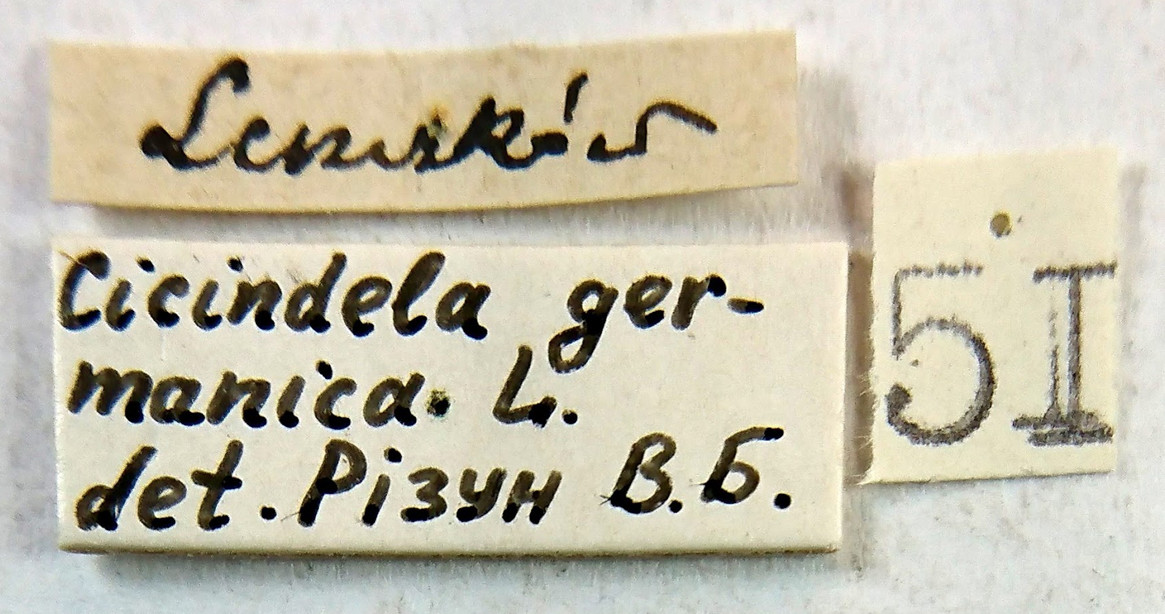 Lemsków
Cicindela ger-
manica. L.
det. Різун В.Б.
5I